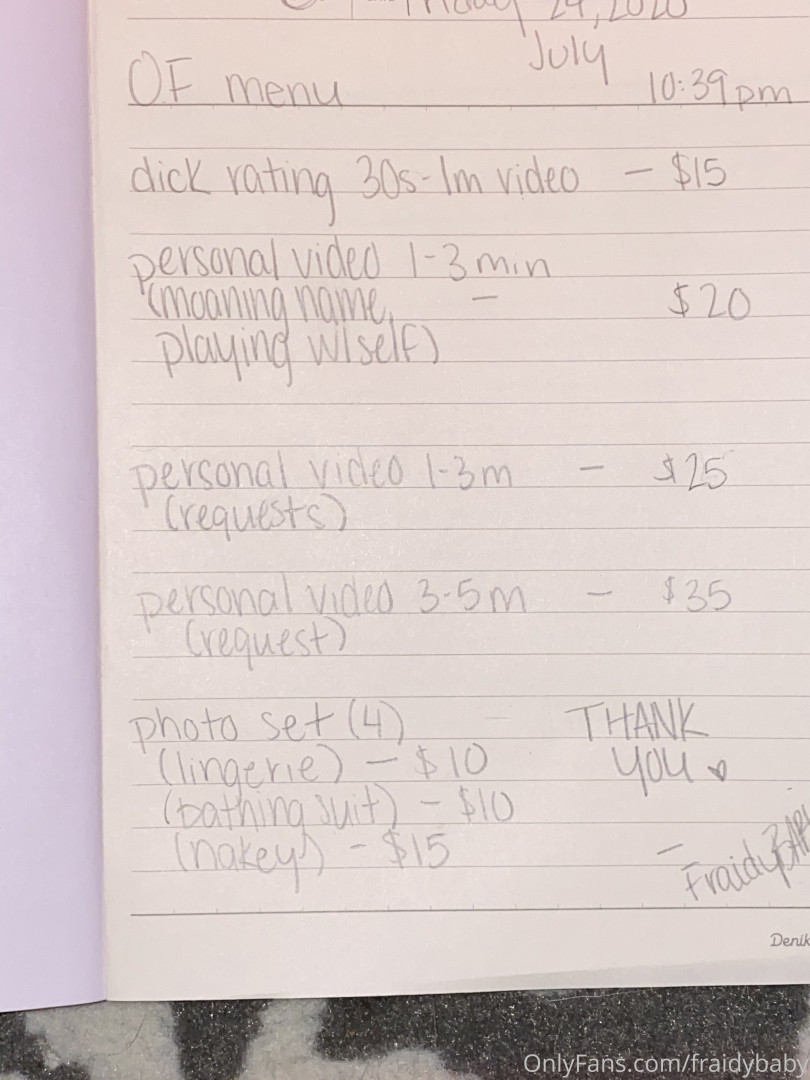 Friday 24, 2020
July
OF menu 10:39pm
dick rating 30s-1m video - $15
personal video 1-3 min
(moaning name, - $20
playing w/self)
personal video 1-3m - $25
(requests)
personal video 3-5m - $35
(request)
photo set (4) THANK
(lingerie) - $10 YOU
(bathing suit) - $10
(nakey) - $15 -
FraidyBABY
Denik
OnlyFans.com/fraidybaby